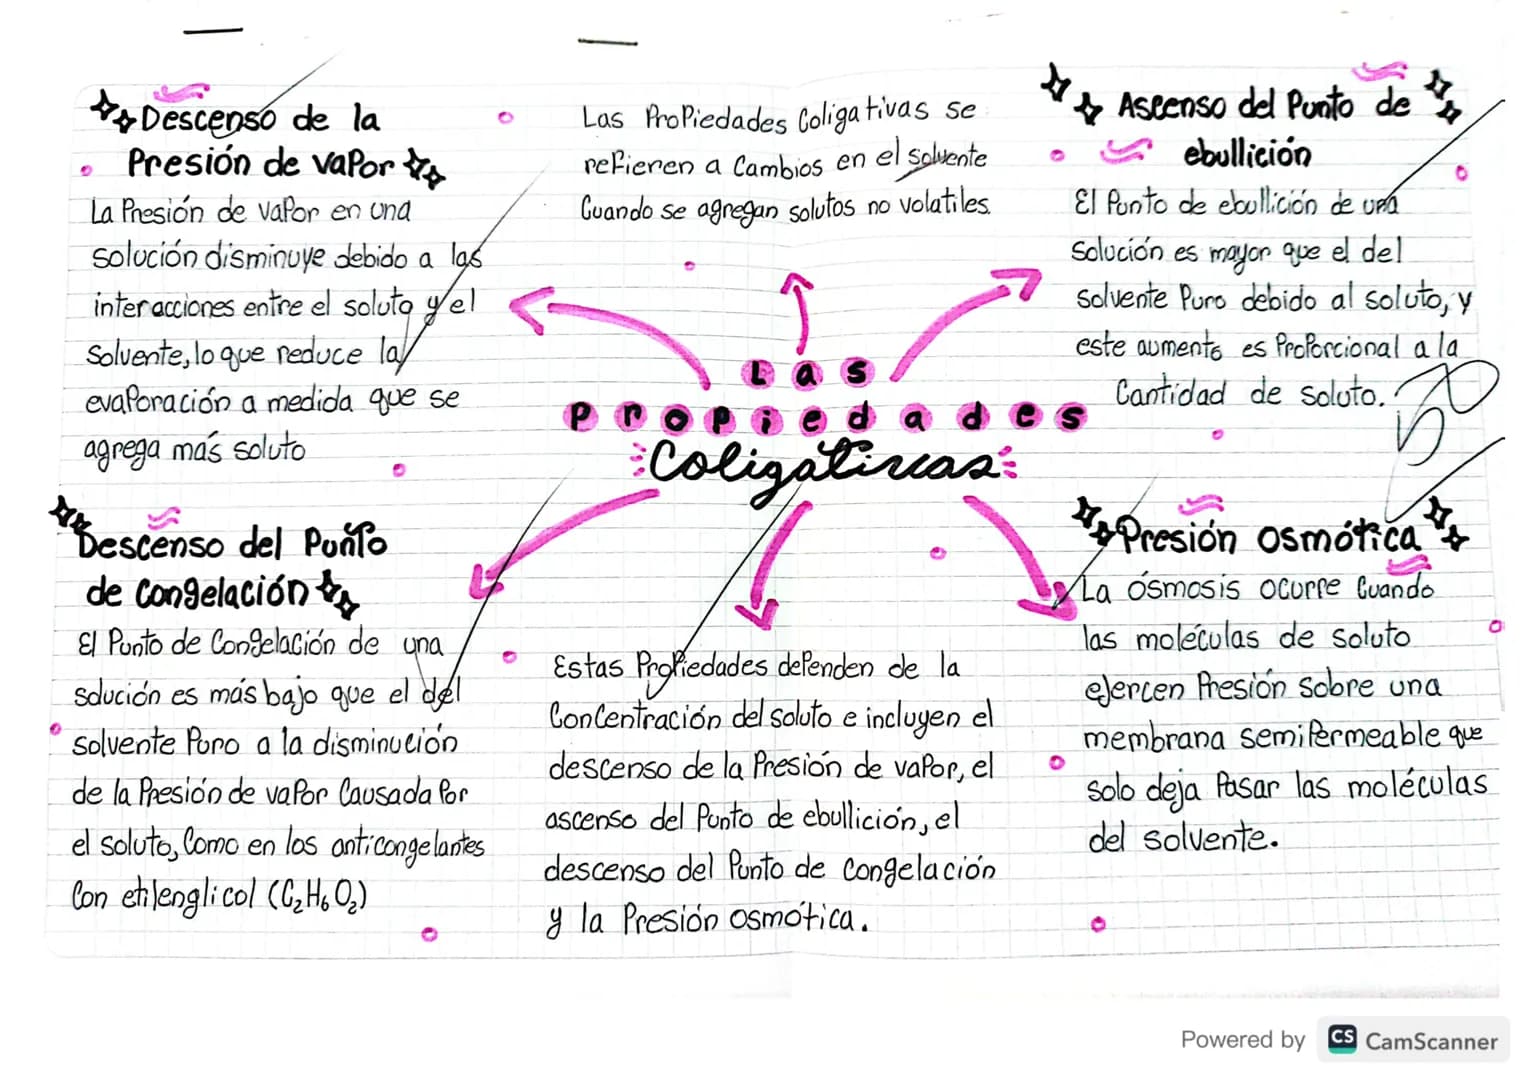 Descenso de la
Presión de vapor
La Presión de vapor en una
solución disminuye debido a las
interacciones entre el soluto y el
solvente, lo que reduce la
evaporación a medida que se
agrega más soluto
Las Propiedades Coligativas se
refieren a Cambios en el solvente
Cuando se agregan solutos no volatiles.
Ascenso del Punto de
ebullición
El Punto de ebullición de una
solución es mayor que el del
solvente Puro debido al soluto, y
este aumento es Proporcional a la
Cantidad de soluto.
Las
Propiedades
Coligativas
Descenso del Punto
de Congelación
El Punto de Congelación de una
solución es más bajo que el del
solvente Puro a la disminución
de la Presión de vapor Causada Por
el soluto, Como en los anticongelantes
Con etilenglicol (C₂H₆O₂)
Estas Propiedades dependen de la
Concentración del soluto e incluyen el
descenso de la Presión de vapor, el
ascenso del Punto de ebullición, el
descenso del Punto de Congelación
y la Presión osmótica.
Presión osmótica
La ósmosis ocurre Cuando
las moléculas de soluto
ejercen Presión sobre una
membrana semipermeable que
solo deja Pasar las moléculas
del solvente.
Powered by CS CamScanner